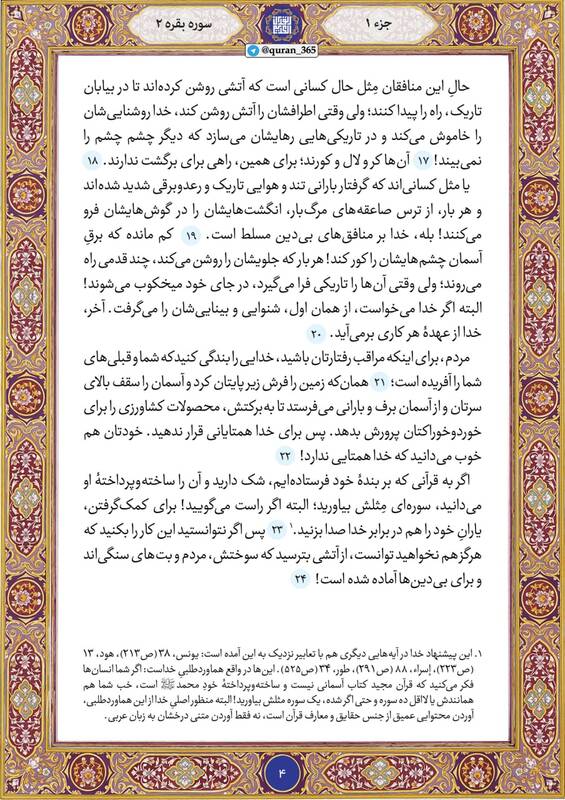 جزء ۱
سوره بقره ۲
@quran_365
حالِ این منافقان مِثل حال کسانی است که آتشی روشن کرده‌اند تا در بیابان
تاریک، راه را پیدا کنند؛ ولی وقتی اطرافشان را آتش روشن کند، خدا روشنایی‌شان
را خاموش می‌کند و در تاریکی‌هایی رهایشان می‌سازد که دیگر چشم چشم را
نمی‌بیند! ۱۷ آن‌ها کر و لال و کورند؛ برای همین، راهی برای برگشت ندارند. ۱۸
یا مثل کسانی‌اند که گرفتار بارانی تند و هوایی تاریک و رعدوبرقی شدید شده‌اند
و هر بار، از ترس صاعقه‌های مرگ‌بار، انگشت‌هایشان را در گوش‌هایشان فرو
می‌کنند! بله، خدا بر منافق‌های بی‌دین مسلط است. ۱۹ کم مانده که برقِ
آسمان چشم‌هایشان را کور کند! هر بار که جلویشان را روشن می‌کند، چند قدمی راه
می‌روند؛ ولی وقتی آن‌ها را تاریکی فرا می‌گیرد، در جای خود میخکوب می‌شوند!
البته اگر خدا می‌خواست، از همان اول، شنوایی و بینایی‌شان را می‌گرفت. آخر،
خدا از عهدهٔ هر کاری برمی‌آید. ۲۰
مردم، برای اینکه مراقب رفتارتان باشید، خدایی را بندگی کنید که شما و قبلی‌های
شما را آفریده است؛ ۲۱ همان‌که زمین را فرش زیر پایتان کرد و آسمان را سقف بالای
سرتان و از آسمان برف و بارانی می‌فرستد تا به‌برکتش، محصولات کشاورزی را برای
خوردوخوراکتان پرورش بدهد. پس برای خدا همتایانی قرار ندهید. خودتان هم
خوب می‌دانید که خدا همتایی ندارد! ۲۲
اگر به قرآنی که بر بندهٔ خود فرستاده‌ایم، شک دارید و آن را ساخته‌وپرداختهٔ او
می‌دانید، سوره‌ای مِثلش بیاورید؛ البته اگر راست می‌گویید! برای کمک‌گرفتن،
یارانِ خود را هم در برابر خدا صدا بزنید.۱ ۲۳ پس اگر نتوانستید این کار را بکنید که
هرگز هم نخواهید توانست، از آتشی بترسید که سوختش، مردم و بت‌های سنگی‌اند
و برای بی‌دین‌ها آماده شده است! ۲۴
۱. این پیشنهاد خدا در آیه‌هایی دیگری هم با تعابیر نزدیک به این آمده است: یونس، ۳۸ (ص۲۱۳)، هود، ۱۳
(ص۲۲۳)، إسراء، ۸۸ (ص۲۹۱)، طور، ۳۴ (ص۵۲۵). این‌ها در واقع هماوردطلبیِ خداست: اگر شما انسان‌ها
فکر می‌کنید که قرآن مجید کتاب آسمانی نیست و ساخته‌وپرداختهٔ خودِ محمد ﷺ است، خب شما هم
همانندش یا لااقل ده سوره و حتی اگر شده، یک سوره مثلش بیاورید! البته منظور اصلیِ خدا از این هماوردطلبی،
آوردن محتوایی عمیق از جنس حقایق و معارف قرآن است، نه فقط آوردن متنی درخشان به زبان عربی.
۴